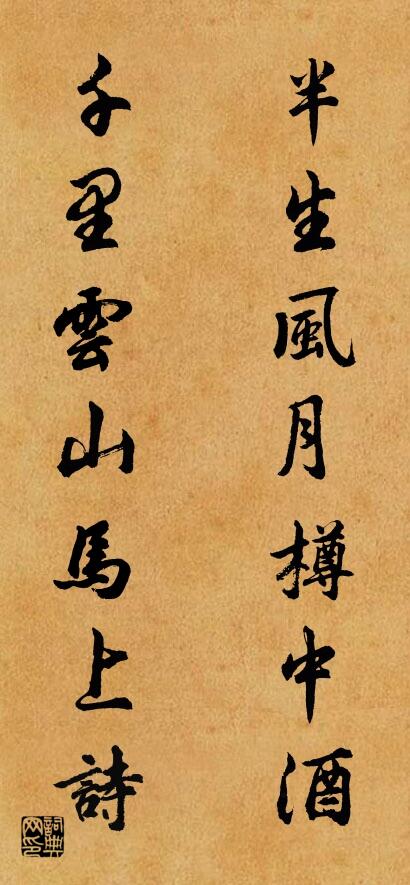 半生風月樽中酒
千里雲山馬上詩
詞典网印